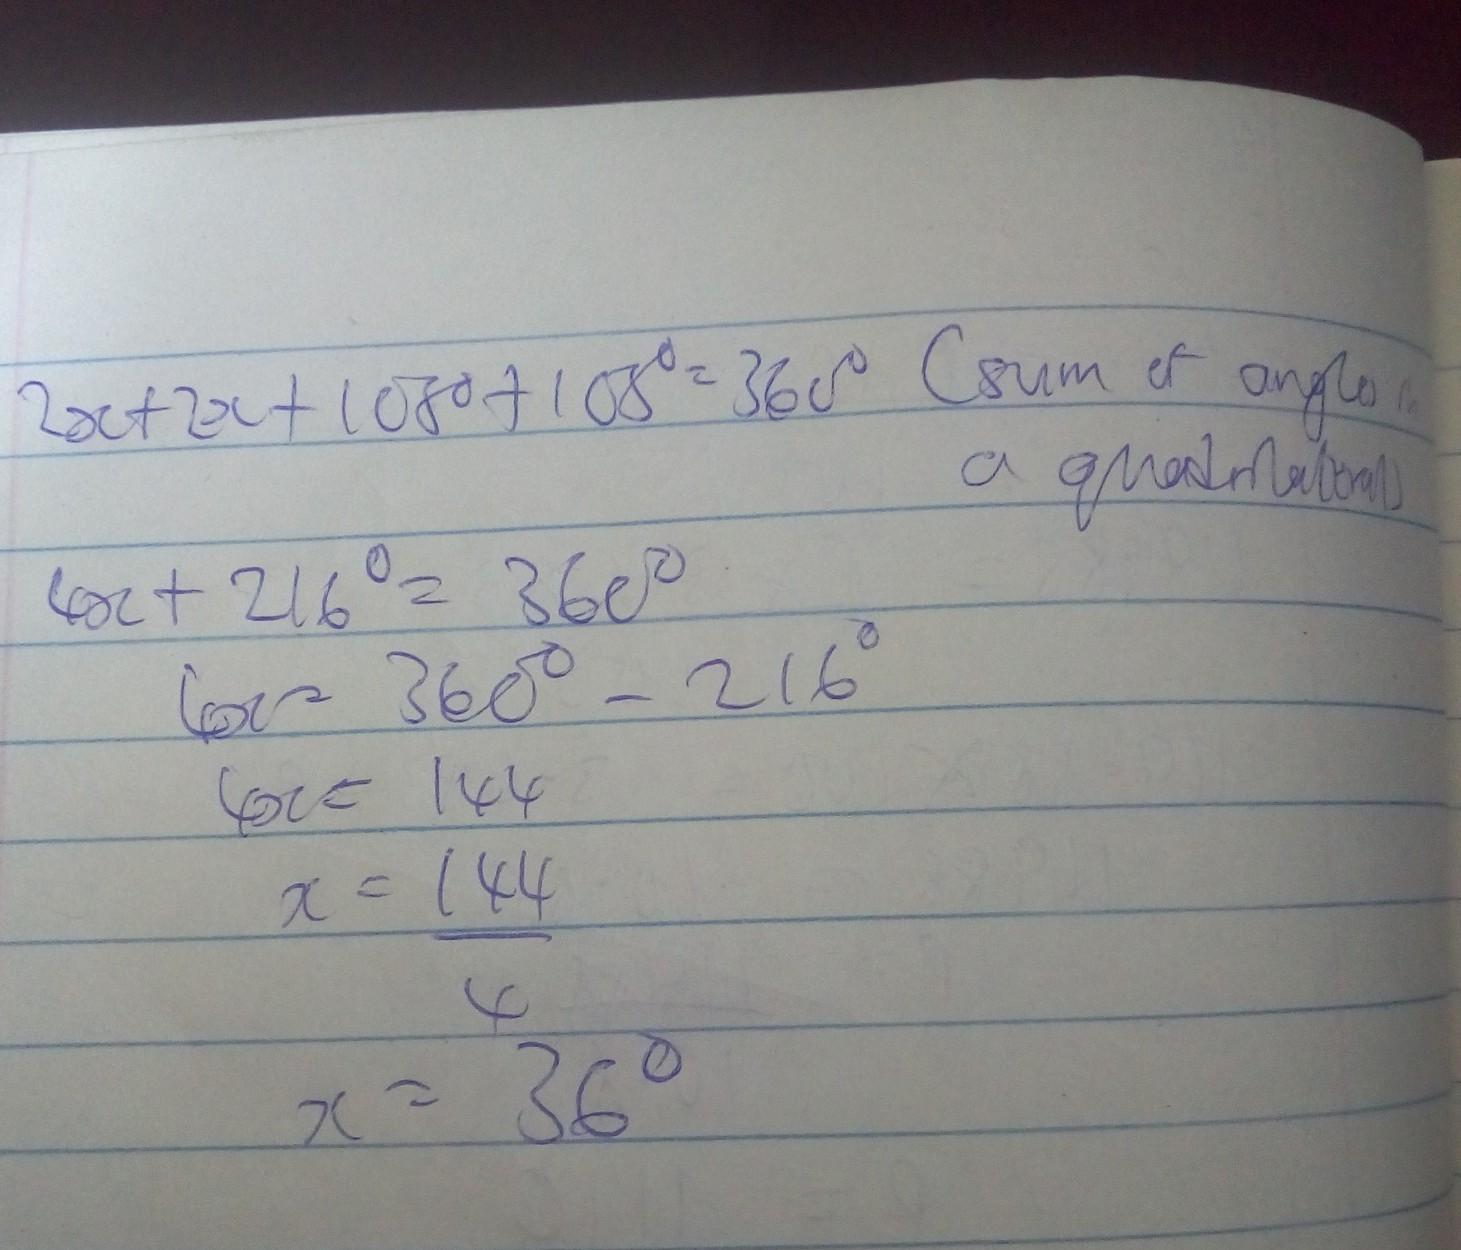 2x+2x+108°+108°=360° (sum of angles in
a quadrilateral)
4x+216°=360°
4x=360°-216°
4x=144
x=144
4
x=36°